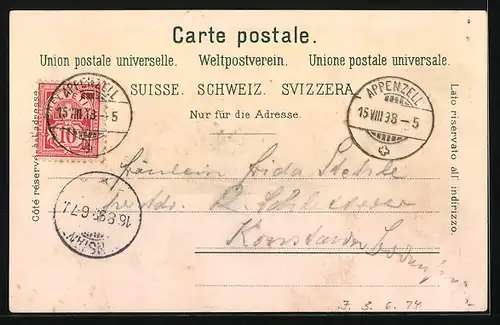 Carte postale.
Union postale universelle. Weltpostverein. Unione postale universale.
SUISSE. SCHWEIZ. SVIZZERA.
Nur für die Adresse.
Côté réservé à l'adresse.
Lato riservato all' indirizzo.
10
APPENZELL
15 VIII 98 – 5
APPENZELL
15 VIII 98 – 5
16.8.98. 6-7
Fräulein Frida
Konstanz